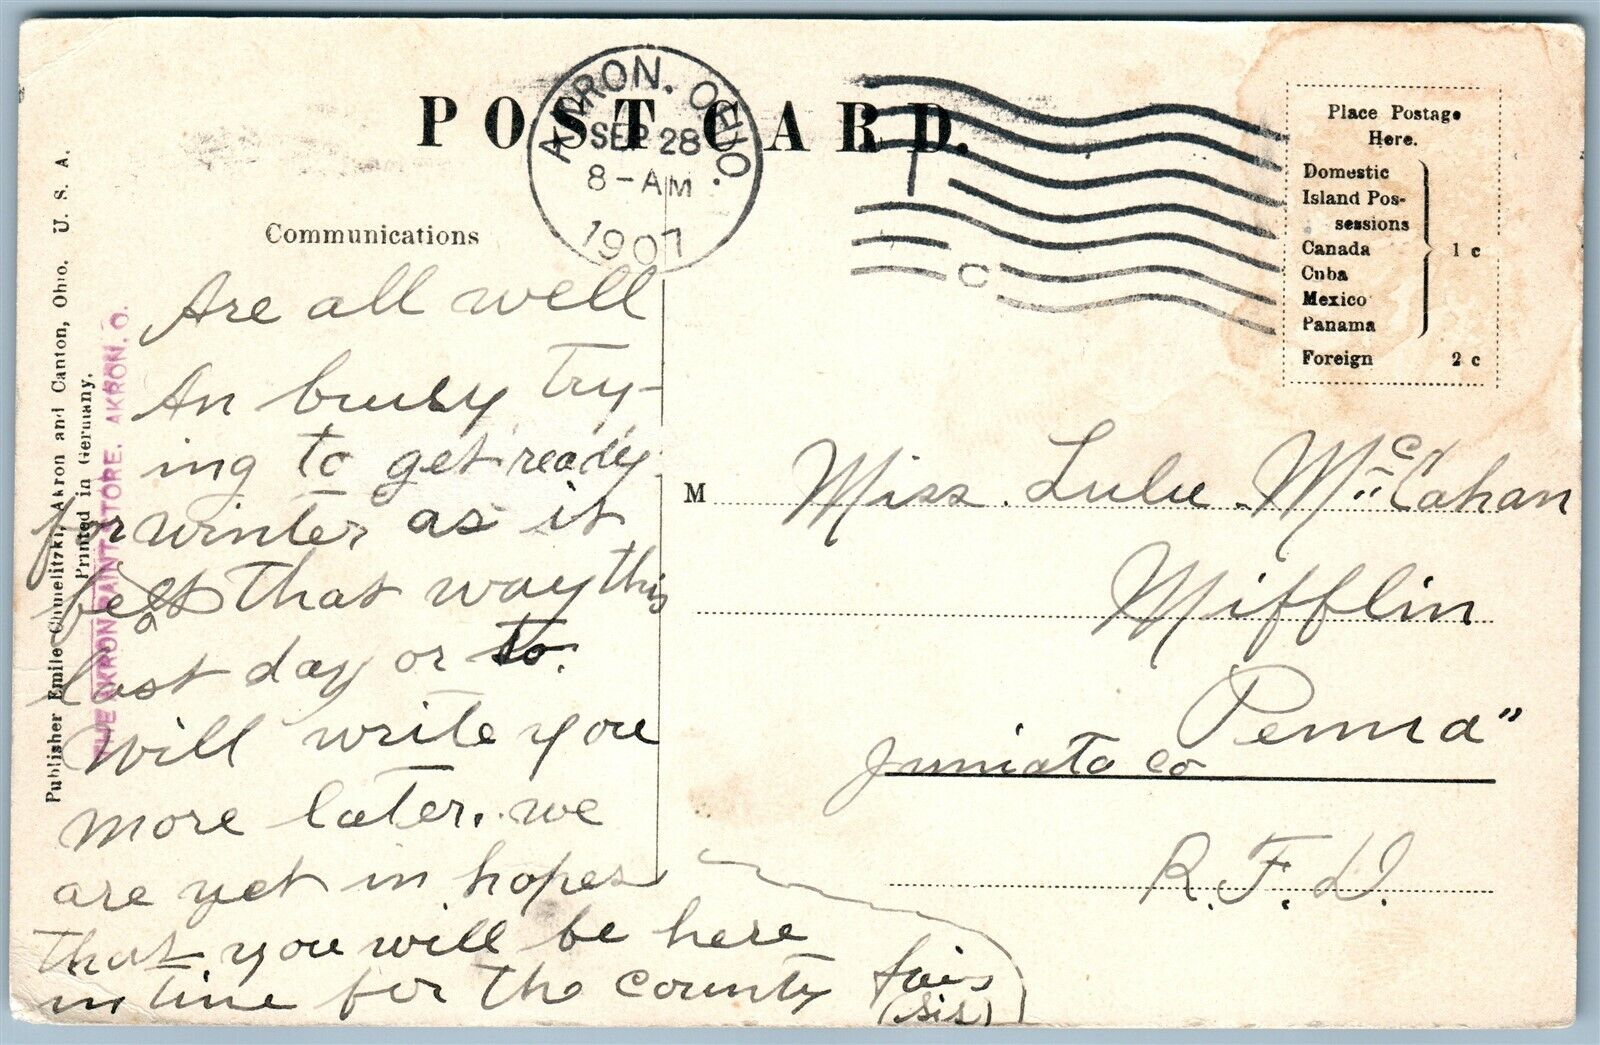 POST CARD.
AKRON. OHIO.
SEP 28
8-AM
1907
C
Place Postage
Here.
Domestic
Island Pos-
sessions
Canada
Cuba
Mexico
Panama
1 c
Foreign 2 c
Communications
Publisher Emile Chmelitzki, Akron and Canton, Ohio. U. S. A.
Printed in Germany.
THE AKRON PAINT STORE. AKRON, O.
Are all well
An busy try-
ing to get ready
for winter as it
that way this
last day or to.
Will write you
more later. we
are yet in hopes
that you will be here
in time for the county fair
(sis)
M Miss. Lulu McCahan
Mifflin
Penna"
Juniata Co
R.F.D.